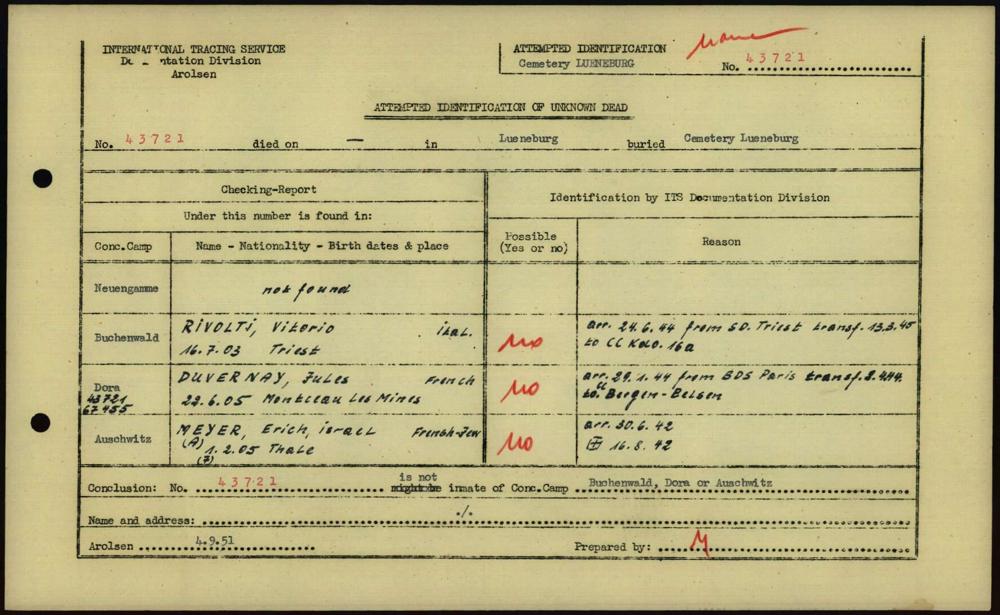 INTERNATIONAL TRACING SERVICE
ntation Division
Arolsen
ATTEMPTED IDENTIFICATION
Cemetery LUENEBURG
No. 43721
ATTEMPTED IDENTIFICATION OF UNKNOWN DEAD
No. 43721 died on — in Lueneburg buried Cemetery Lueneburg
Checking-Report
Under this number is found in:
Identification by ITS Documentation Division
Conc.Camp
Name - Nationality - Birth dates & place
Possible
(Yes or no)
Reason
Neuengamme not found
Buchenwald
RIVOLTi, Vitorio ital.
16.7.03 Triest
no
arr. 24.6.44 from SD. Triest transf. 13.3.45
to CC Kdo. 16a
Dora
43721
67455
DUVERNAY, Jules French
22.6.05 Montceau Les Mines
no
arr. 29.1.44 from BDS Paris transf. 2.4.44.
to Bergen-Belsen
Auschwitz
MEYER, Erich, israel French-Jew
(A) 1.2.05 Thale
(?)
no
arr. 30.6.42
16.8.42
Conclusion: No. 43721 is not inmate of Conc.Camp Buchenwald, Dora or Auschwitz
Name and address: ./.
Arolsen 4.9.51 Prepared by: